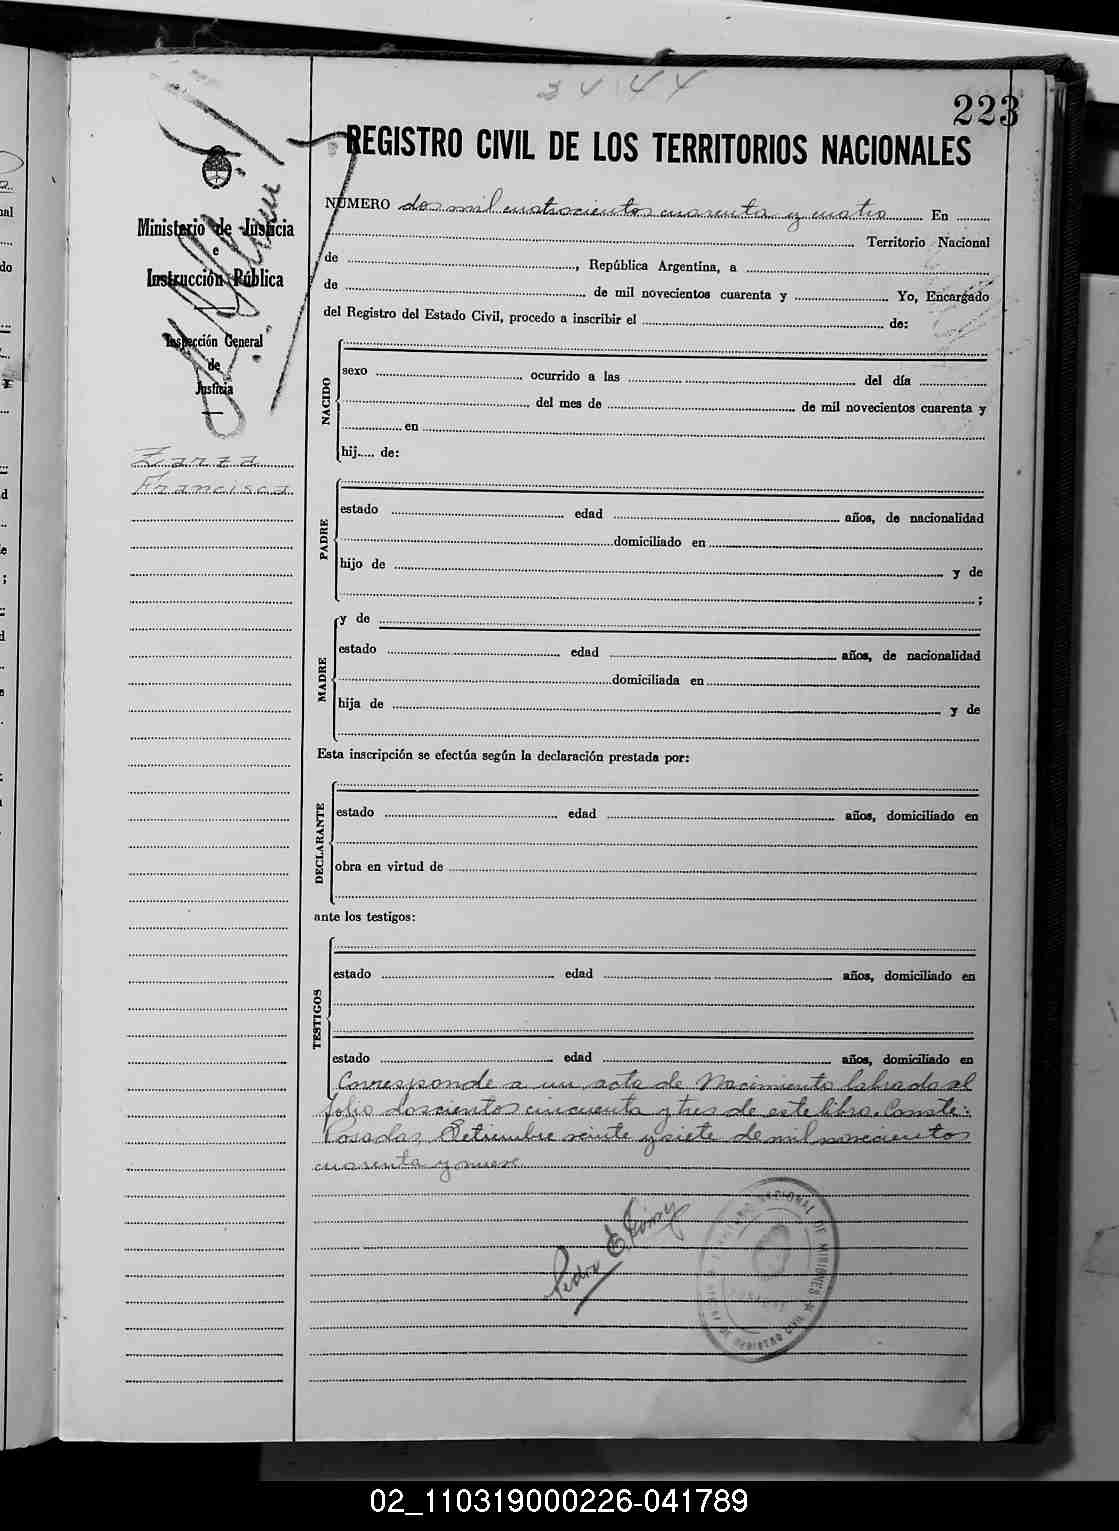 2444
223
REGISTRO CIVIL DE LOS TERRITORIOS NACIONALES
Ministerio de Justicia
e
Instrucción Pública
Inspección General
de
Justicia
Zarza
Francisca
NÚMERO dos mil cuatrocientos cuarenta y cuatro En
Territorio Nacional
de , República Argentina, a
de de mil novecientos cuarenta y Yo, Encargado
del Registro del Estado Civil, procedo a inscribir el de:
NACIDO
sexo ocurrido a las del día
del mes de de mil novecientos cuarenta y
en
hij..... de:
PADRE
estado edad años, de nacionalidad
domiciliado en
hijo de y de
;
MADRE
y de
estado edad años, de nacionalidad
domiciliada en
hija de y de
Esta inscripción se efectúa según la declaración prestada por:
DECLARANTE
estado edad años, domiciliado en
obra en virtud de
ante los testigos:
TESTIGOS
estado edad años, domiciliado en
estado edad años, domiciliado en
Corresponde a un acta de Nacimiento labrada al
folio doscientos cincuenta y tres de este libro. Conste:
Posadas, Setiembre veinte y siete de mil novecientos
cuarenta y nueve
Pedro E.
NACIONAL DE MISIONES
02_110319000226-041789